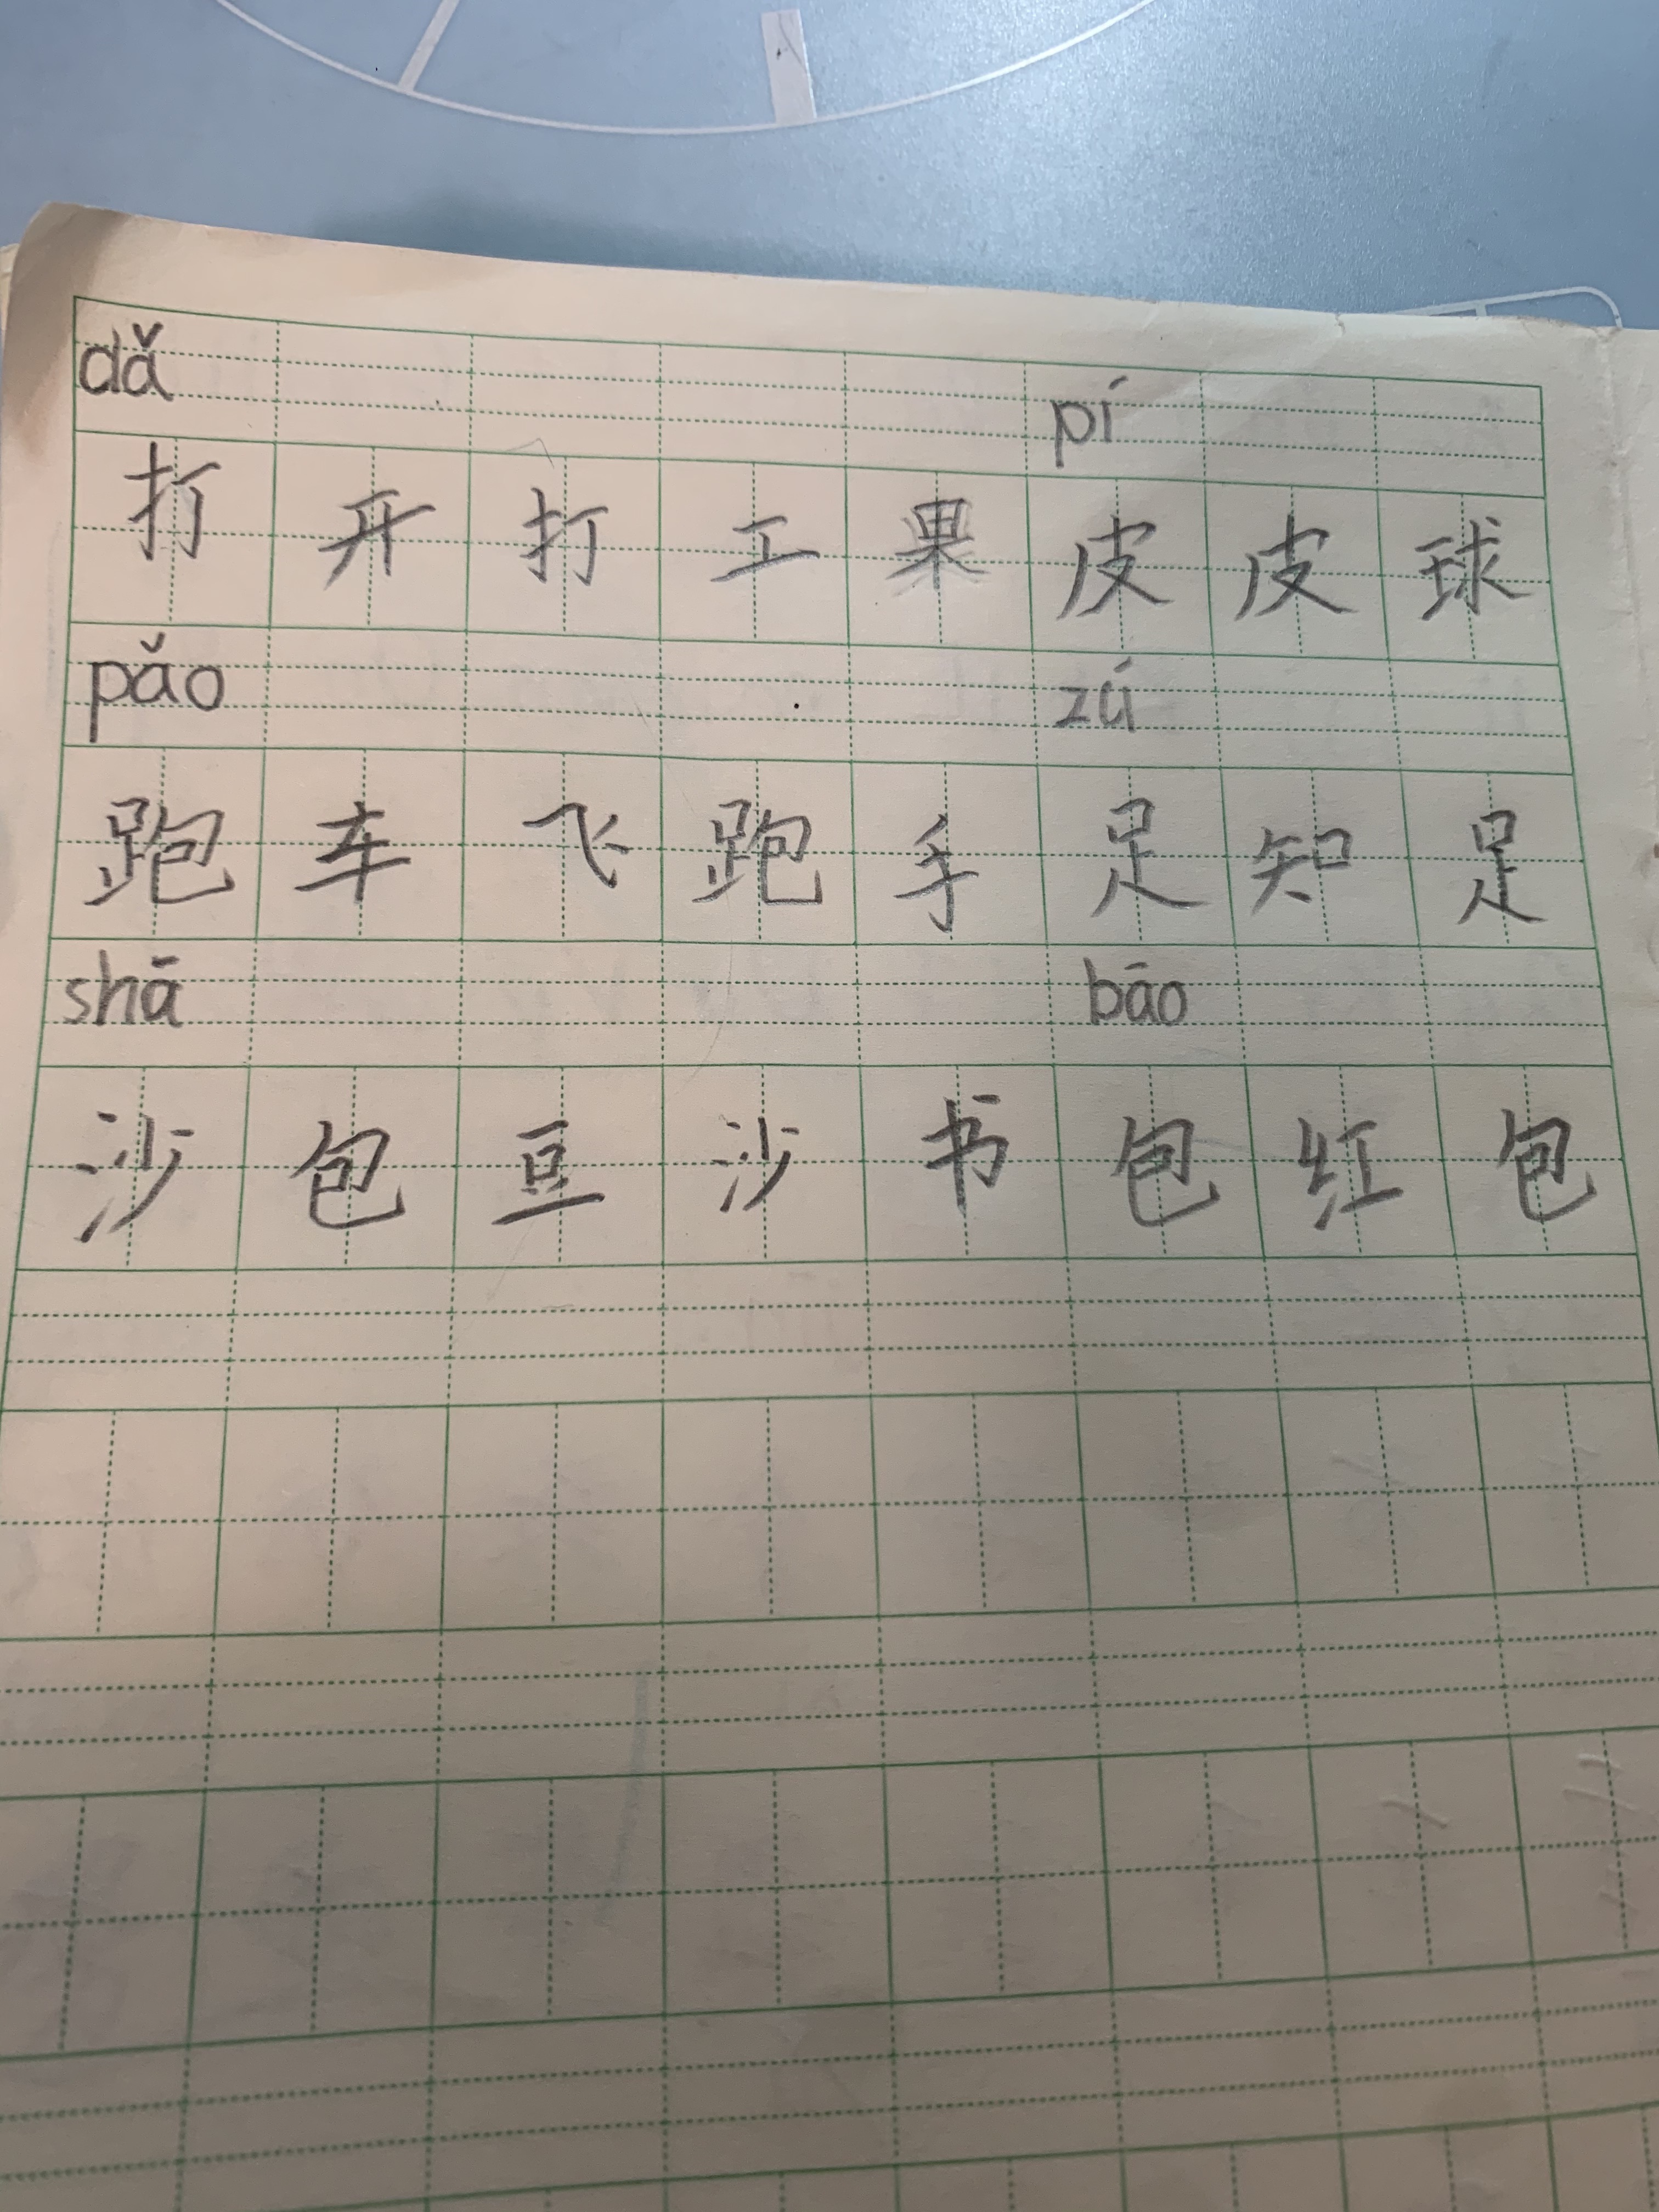 dǎ pí
打开打工果皮皮球
pǎo zú
跑车飞跑手足知足
shā bāo
沙包豆沙书包红包